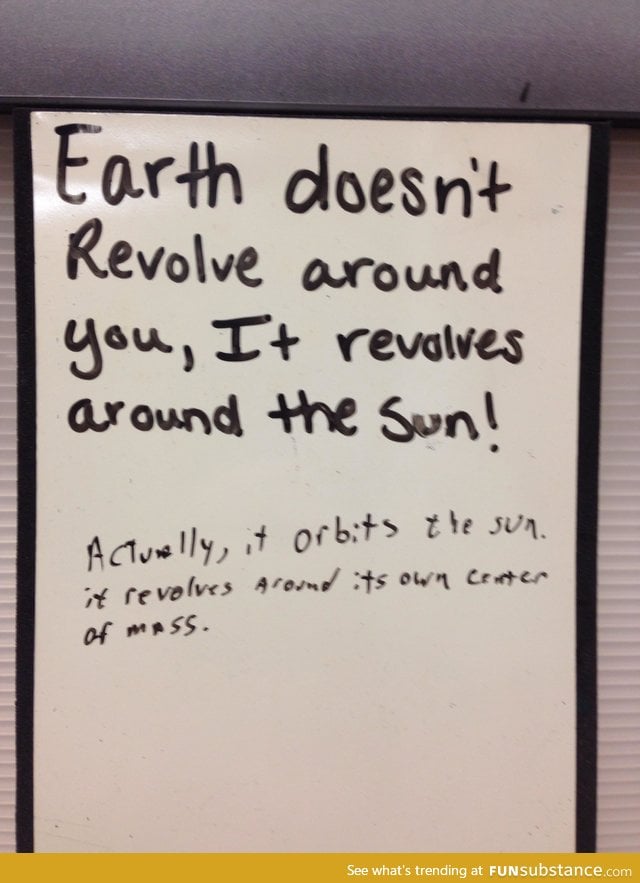 Earth doesn't
Revolve around
you, It revolves
around the Sun!
Actually, it orbits the sun.
it revolves around its own center
of mass.
See what's trending at FUNsubstance.com